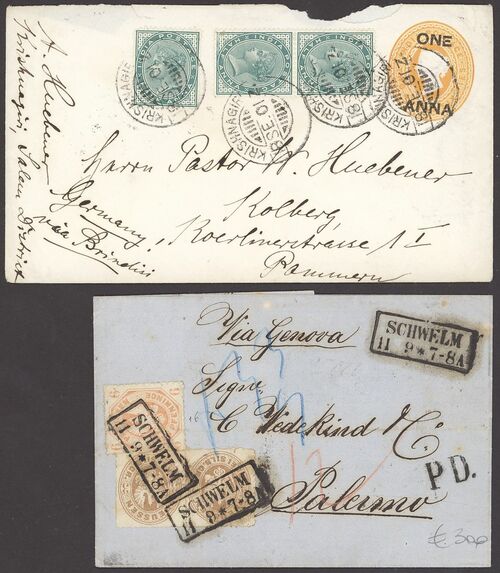 A. Huebener
Krishnagiri, Salem District
ONE
ANNA
INDIA
INDIA
INDIA
KRISHNAGIRI
KRISHNAGIRI
KRISHNAGIRI
KRISHNAGIRI
Herrn Pastor W. Huebener
Kolberg,
Koerlinerstrasse 1 I
Pommern
Germany,
via Brindisi
Via Genova
SCHWELM
11 9*7-8A
Sigri
C. Wedekind & C.
Palermo
P D.
SCHWELM
11 9*7-8A
SCHWELM
11 9*7-8A
PREUSSEN
€ 300